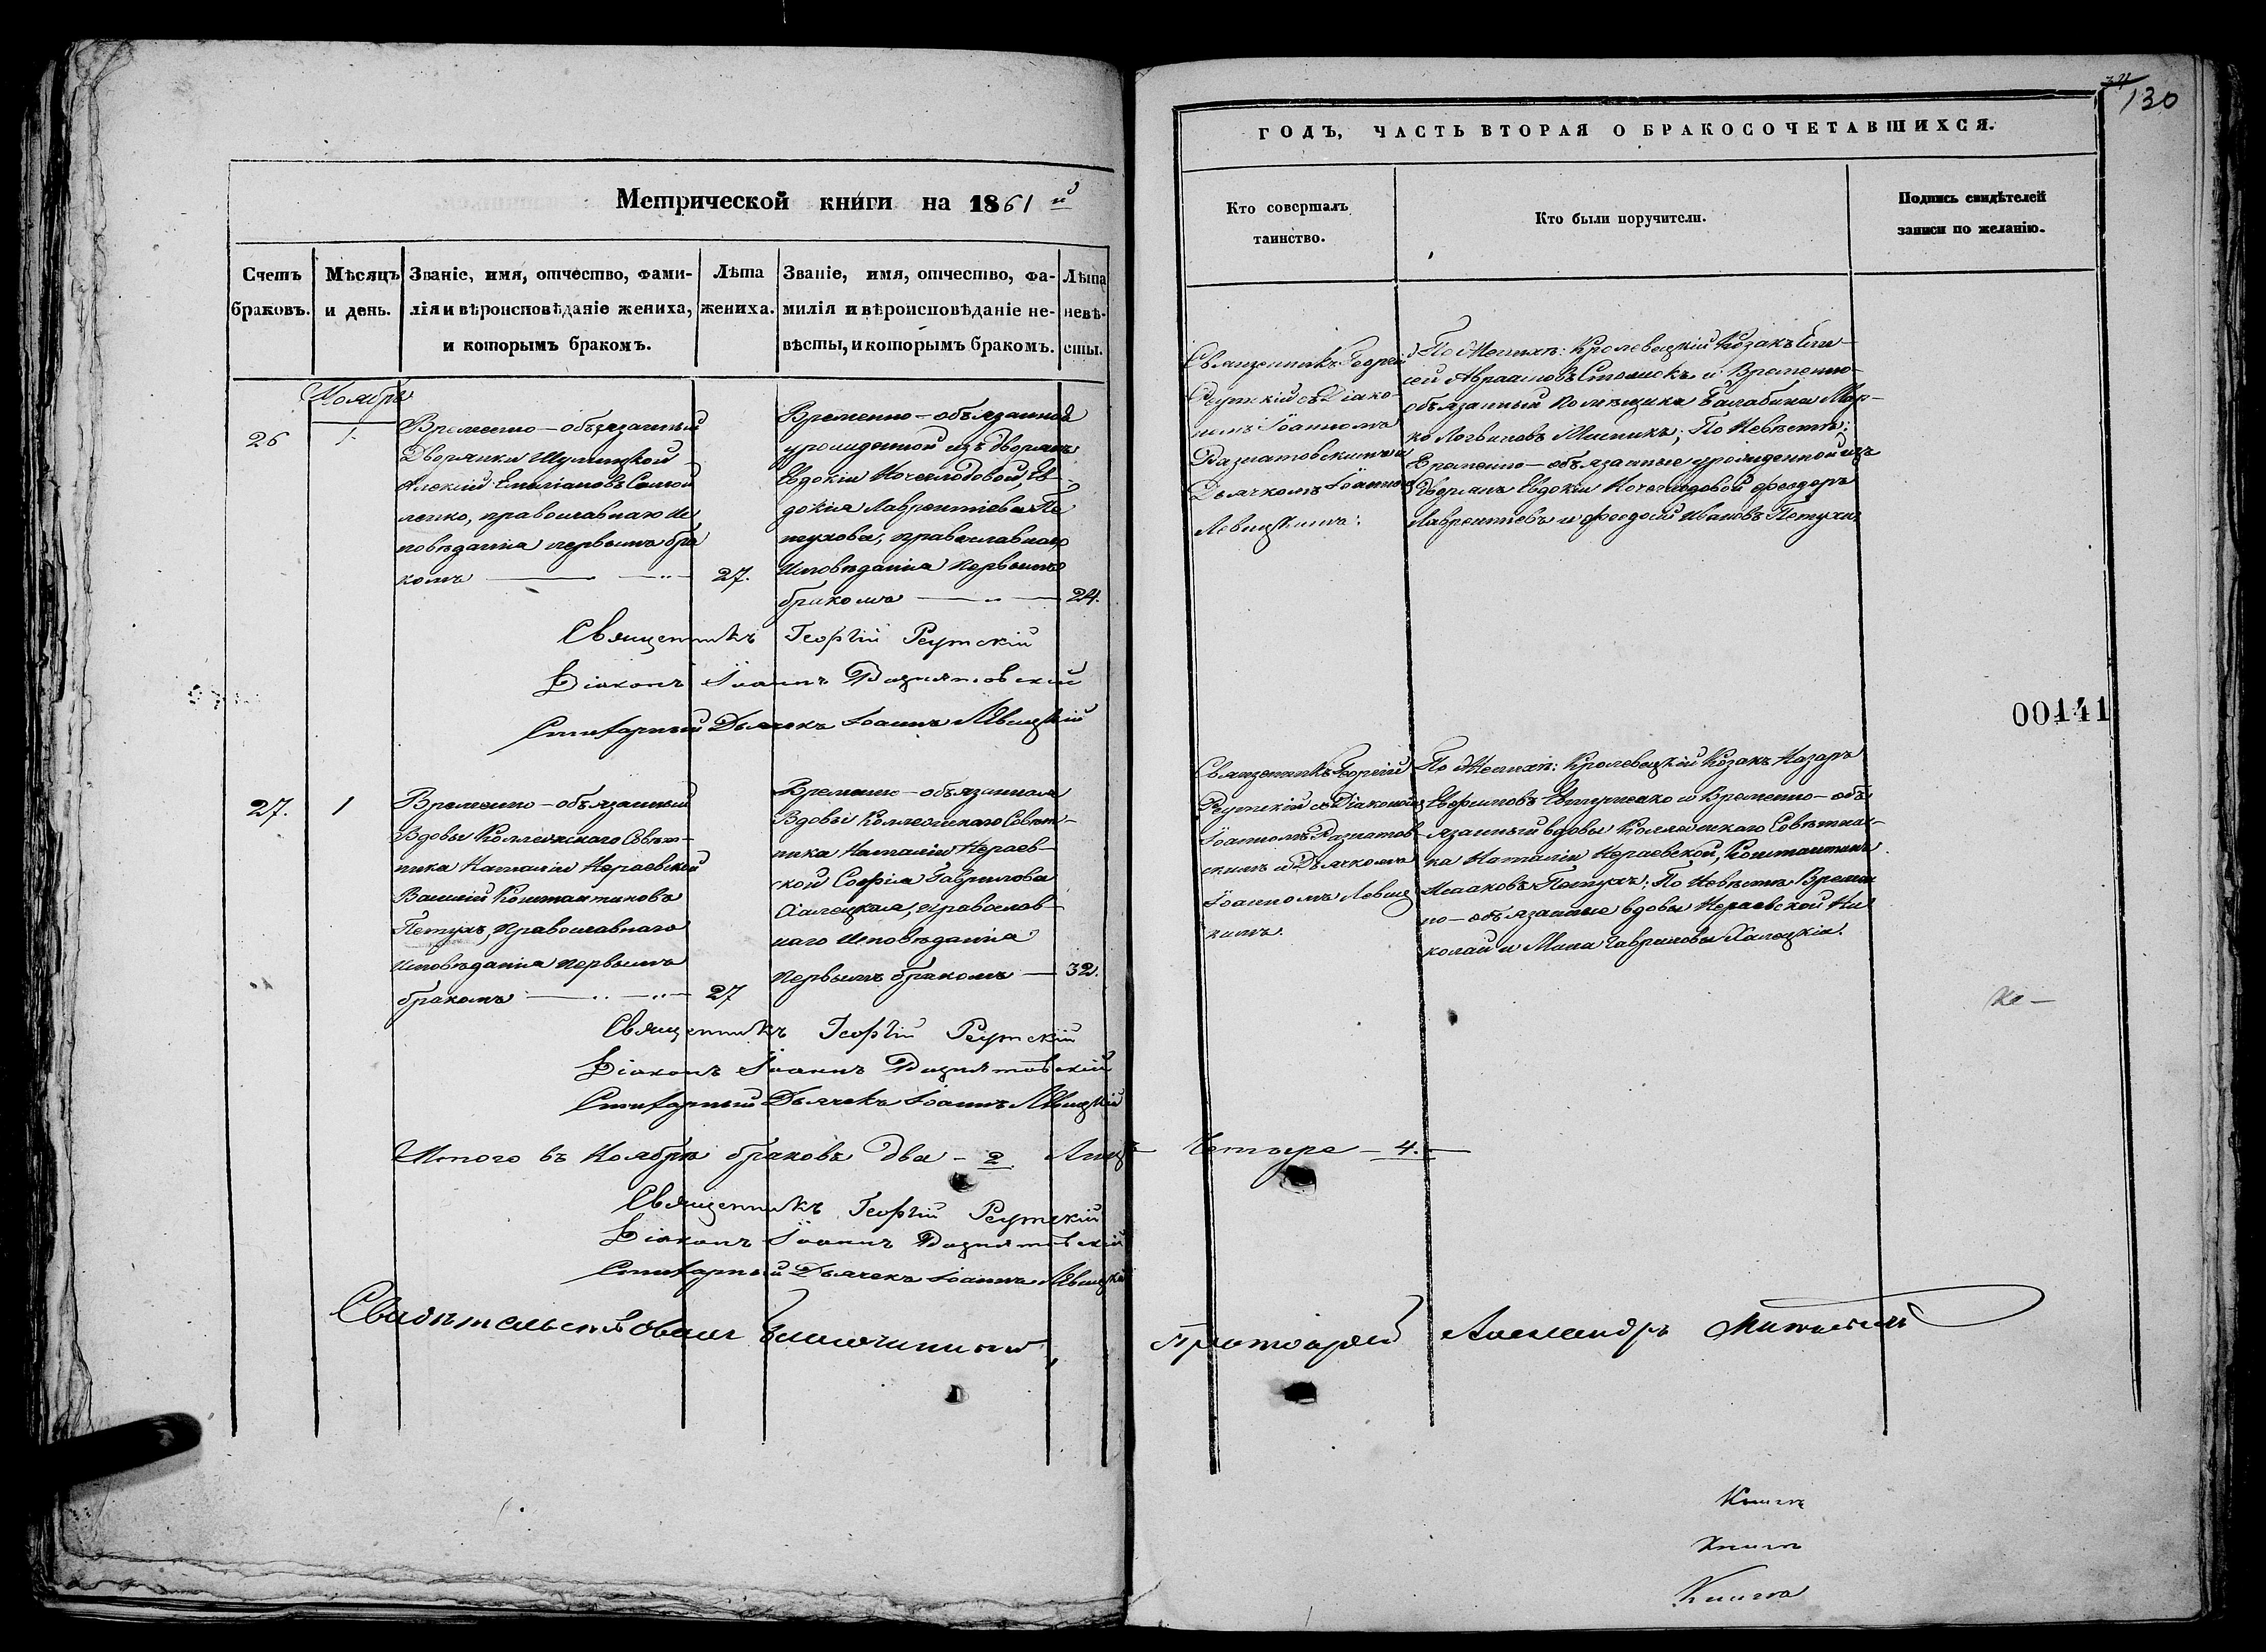 130
Метрической книги на 1861й
ГОДЪ, ЧАСТЬ ВТОРАЯ О БРАКОСОЧЕТАВШИХСЯ.
Счетъ браковъ.
Мѣсяцъ и день.
Званіе, имя, отчество, фами-
лія и вѣроисповѣданіе жениха,
и которымъ бракомъ.
Лѣта
жениха.
Званіе, имя, отчество, фа-
милія и вѣроисповѣданіе не-
вѣсты, и которымъ бракомъ.
Лѣта
невѣ-
сты.
Кто совершалъ
таинство.
Кто были поручители.
Подпись свидѣтелей
записи по желанію.
Ноябрь
26
1.
Временно-обязанный
Дворянки Шумицкой
Алексій Емиліановъ
ленко, православнаго Ис
повѣданія первымъ бра
комъ
27.
Временно-обязанной
урожденной изъ дворянъ
Евдокіи Кочемодовой, Ев-
докія Лаврентіева Пе
тухова, православнаго
Исповѣданія первымъ
бракомъ
24.
Священникъ Георгій
Реутскій съ Діако-
номъ Іоанномъ
Дьячкомъ Іоанномъ
Левицкимъ:
По Женихѣ: Кролевецкій Козакъ
Авраамовъ и Временно-
обязанный помѣщика Балабина Мар-
ко Логвиновъ; По Невѣстѣ:
Временно-обязанные урожденной изъ
Дворянъ Евдокіи Кочемодовой Феодоръ
Лаврентіевъ и Феодосій Ивановъ Петухи.
Священникъ Георгій Реутскій
Діаконъ Іоаннъ
Стихарный Дьячекъ Іоаннъ Левицкій
00141
27.
1
Временно-обязанный
Вдовы Коллежскаго Совѣт-
ника Наталіи Нераевской
Василій Константиновъ
Петухъ, Православнаго
Исповѣданія первымъ
бракомъ
27
Временно-обязанная
Вдовы Коллежскаго Совѣт-
ника Наталіи Нераев-
ской Софія Гаврилова
Халецкая, православ-
наго Исповѣданія
первымъ бракомъ
32.
Священникъ Георгій
Реутскій съ Діакономъ
Іоанномъ
скимъ и Дьячкомъ
Іоанномъ Левиц
кимъ.
По Женихѣ: Кролевецкій Козакъ Назаръ
Евтушенко и Временно-обя
занный вдовы Коллежскаго Совѣтни-
ка Наталіи Нераевской, Константинъ
Исааковъ Петухъ; По Невѣстѣ Времен
но-обязанные вдовы Нераевской Ни
колай и Мина Гавриловы Халецкіе.
Священникъ Георгій Реутскій
Діаконъ Іоаннъ
Стихарный Дьячекъ Іоаннъ Левицкій
Итого въ Ноябрѣ браковъ два - 2 Лицъ - Четыре - 4. -
Священникъ Георгій Реутскій
Діаконъ Іоаннъ
Стихарный Дьячекъ Іоаннъ Левицкій
Свидѣтельствовалъ Благочинный, Протоіерей Александръ
Книга